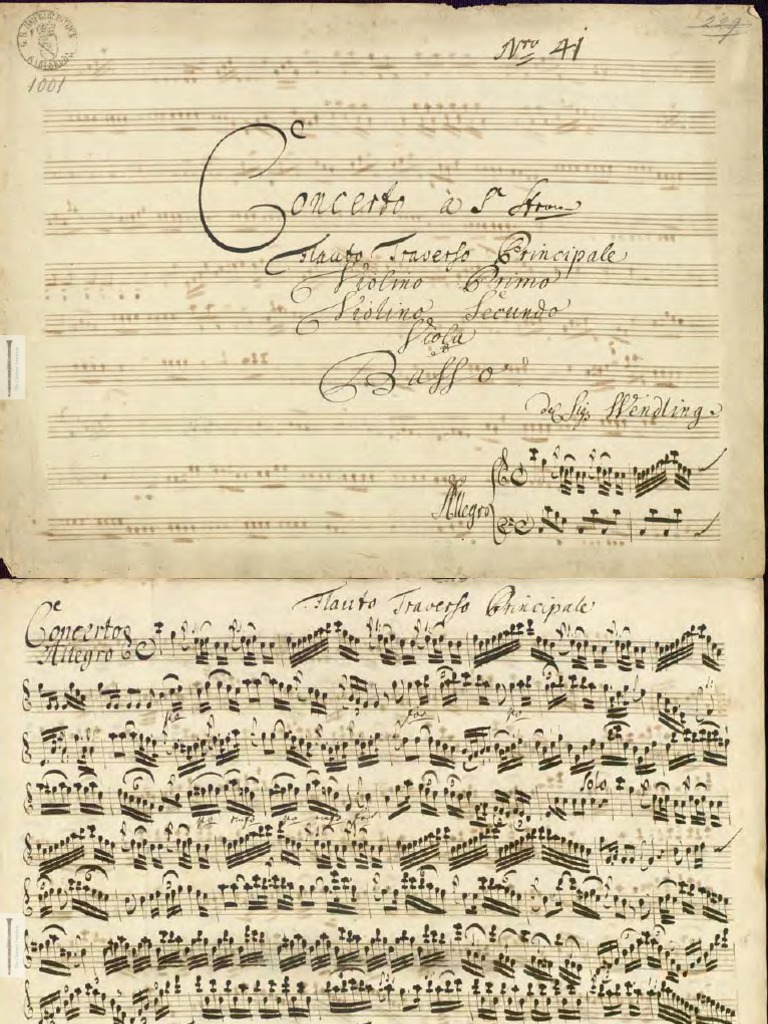 Nro 41
229
1001
Concerto à 5
Flauto Traverso Principale
Violino Primo
Violino Secundo
Viola
Basso
del Sigr Wendling.
Allegro
Flauto Traverso Principale
Concerto
Allegro
Solo